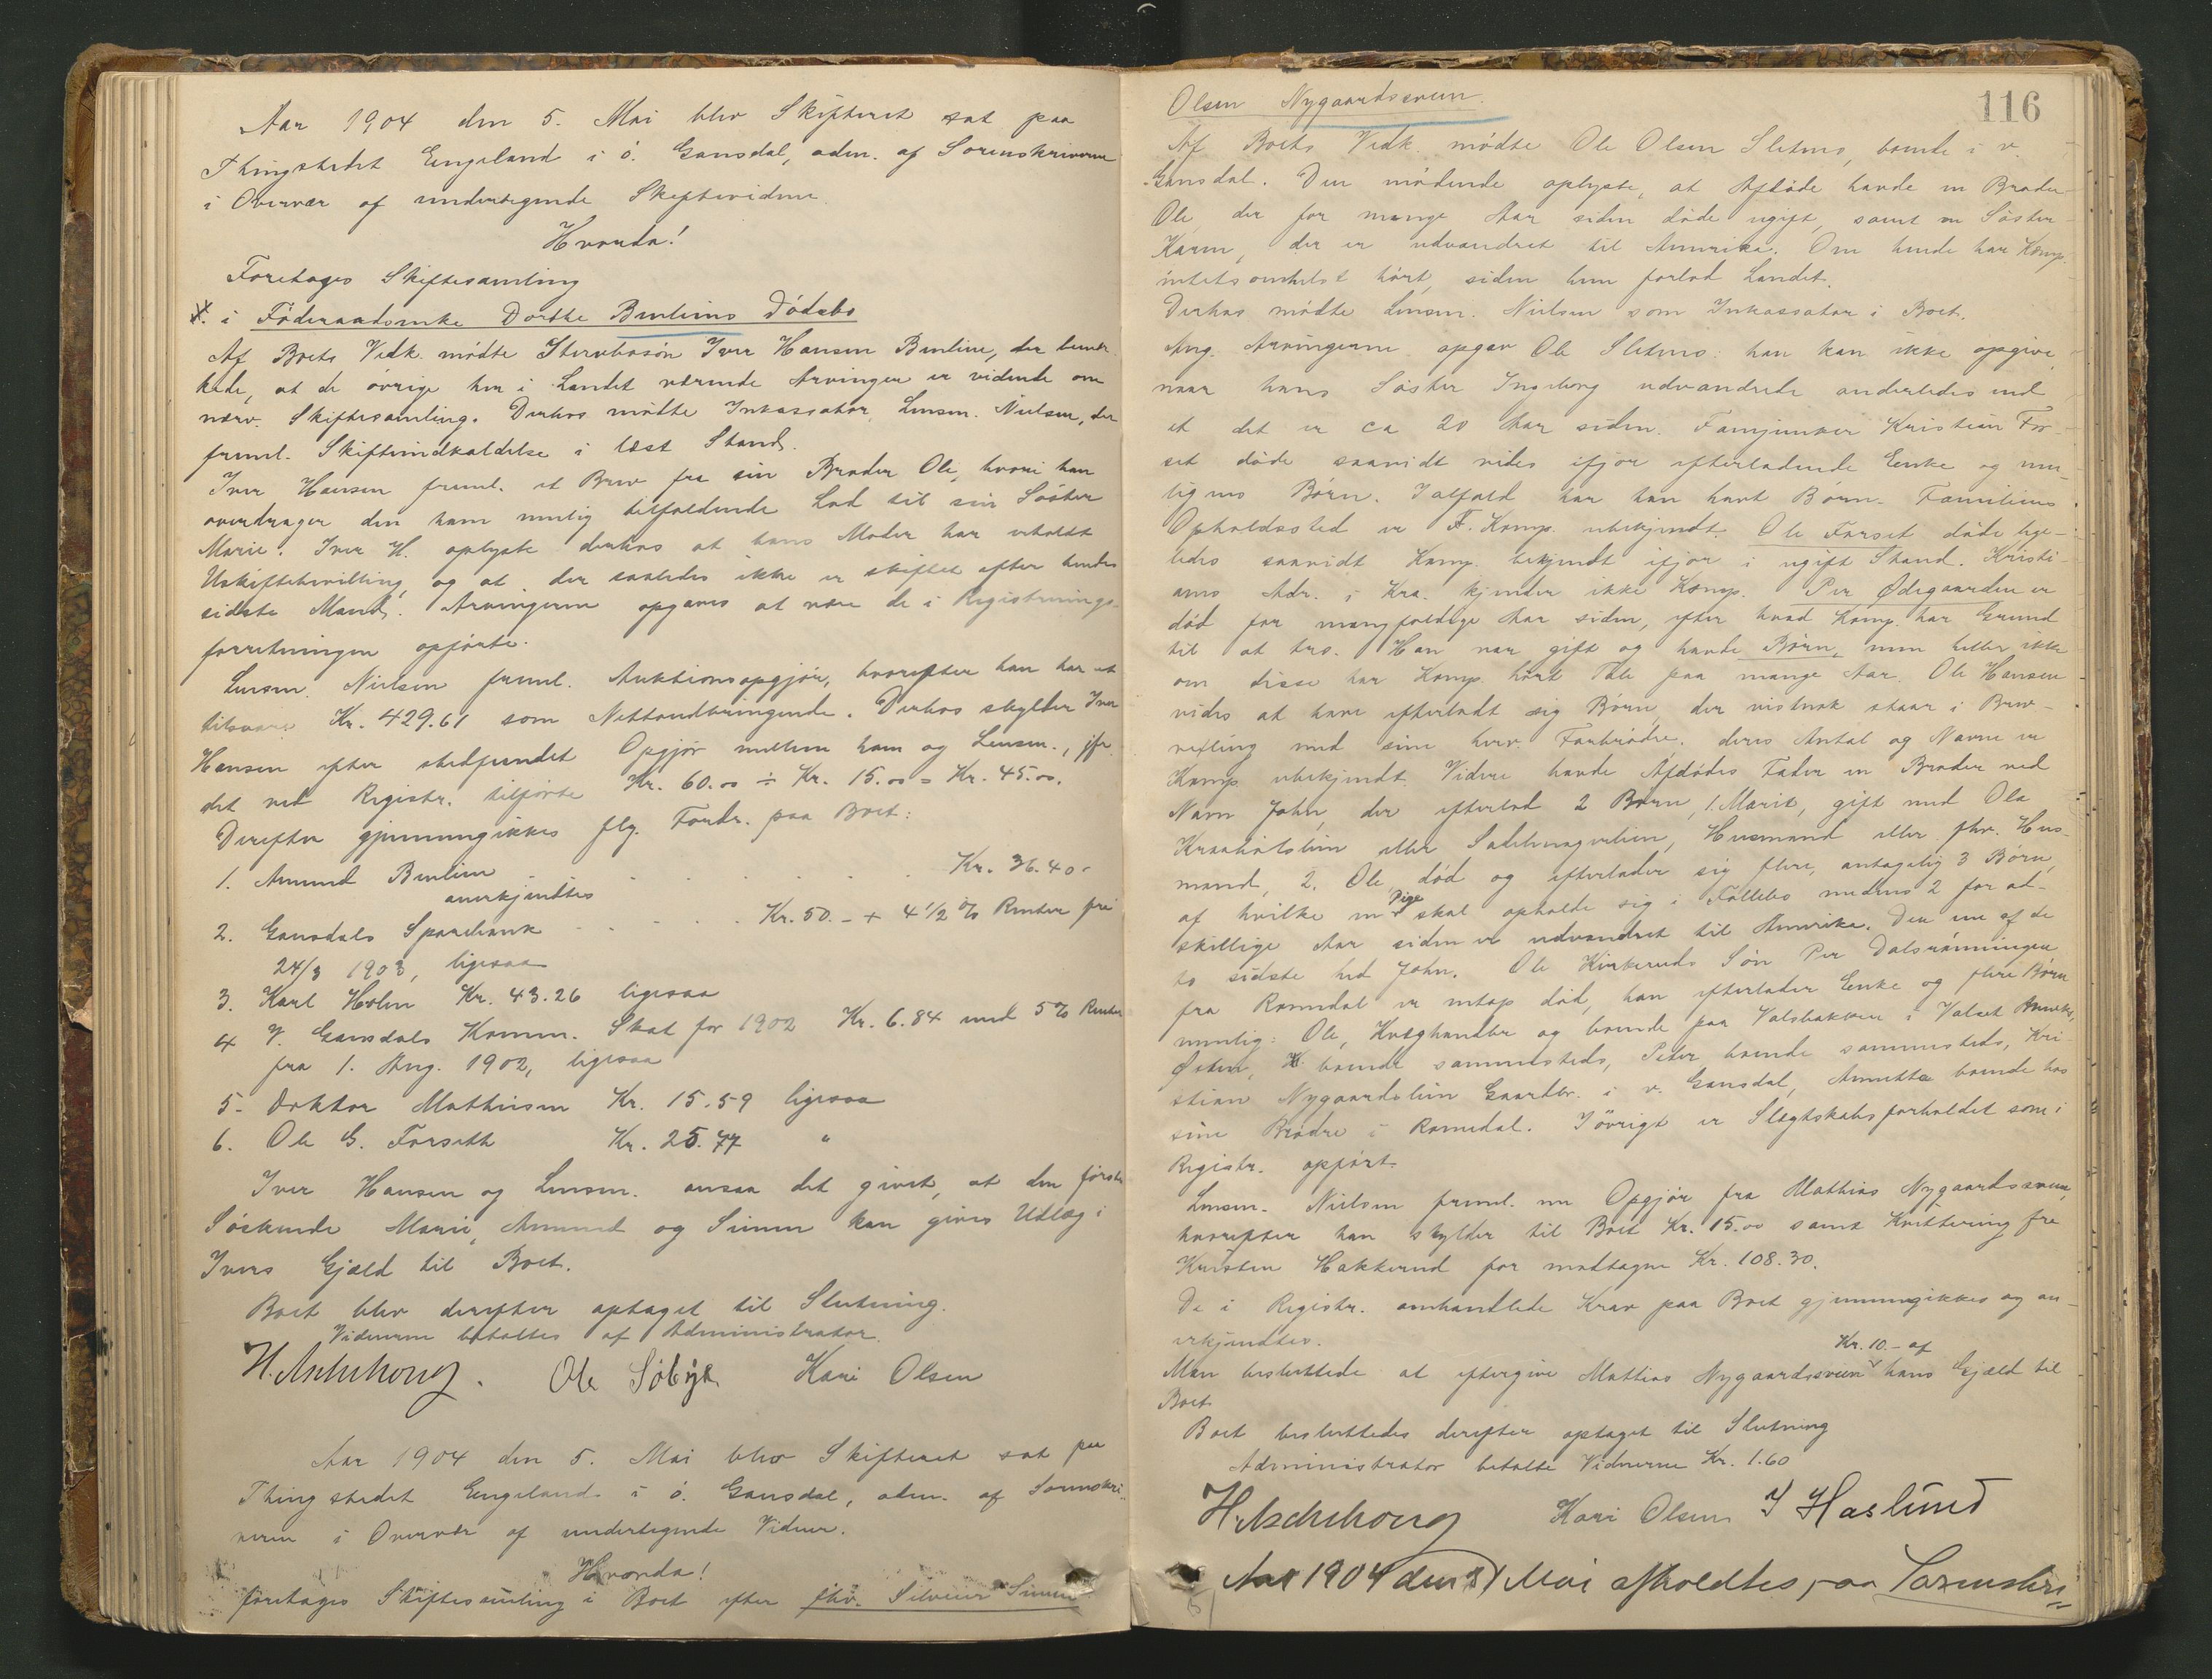 Aar 1904 den 5. Mai blev Skifteret sat paa
Thingstedet Engeland i ö. Gausdal, adm. af Sorenskriveren
i Overvær af undertegnede Skiftevidner.
Hvorda!
Foretoges Skiftesamling
X. i Föderaadsenke Dorthe Benliens Dödsbo
Af Boets Vedk. mödte Stervbosön Iver Hansen Benlien, der bemær-
kede, at de övrige her i Landet værende Arvinger er vidende om
nærv. Skiftesamling. Derhos mödte Inkassator, Lensm. Nielsen, der
freml. Skifteindkaldelse i læst Stand.
Iver Hansen freml. et Brev fra sin Broder Ole, hvori han
overdrager den ham muelig tilfaldende Lod til sin Söster
Marie. Iver H. oplyste derhos at hans Moder har erholdt
Uskiftebevilling, og at der saaledes ikke er skiftet efter hendes
sidste Mand. Arvingerne opgaves at være de i Registrerings-
forretningen opförte.
Lensm. Nielsen freml. Auktionsopgjör, hvorefter han har at
tilsvare Kr. 429.61 som Nettoudbringende. Derhos skylder Iver
Hansen efter stedfundet Opgjör mellem ham og Lensm., jfr.
det ved Registr. tilförte Kr. 60.00 ÷ Kr. 15.00 = Kr. 45.00.
Derefter gjennemgikkes flg. Fordr. paa Boet:
1. Amund Benlien . . . . . . Kr. 36.40 -
anerkjendtes
2. Gausdals Sparebank . . . . Kr. 50. - + 4 1/2 % Renter fra
24/3 1903, ligesaa
3. Karl Holm Kr. 43.26 ligesaa
4 V. Gausdals Komm. Skat for 1902 Kr. 6.84 med 5% Renter
fra 1. Aug. 1902, ligesaa
5. Doktor Mathiesen Kr. 15.59 ligesaa
6. Ole G. Forseth Kr. 25.77 "
Iver Hansen og Lensm. ansaa det givet, at den förste
Söskende Marie, Amund og Simen kan gives Udlæg i
Ivers Gjæld til Boet.
Boet blev derefter optaget til Slutning.
Vidnerne betaltes af Administrator.
H. Aschehoug. Ole Söbye Kari Olsen
Aar 1904 den 5. Mai blev Skifteret sat paa
Thingstedet Engeland i ö. Gausdal, adm. af Sorenskri-
veren i Overvær af undertegnede Vidner.
Hvorda!
foretoges Skiftesamling i Boet efter fhv. Simen
116
Olsen Nygaardssveen.
Af Boets Vedk. mödte Ole Olsen Sletmo, boende i v.
Gausdal. Den mödende oplyste, at Afdöde havde en Broder
Ole, der for mange Aar siden döde ugift, samt en Söster
Karen, der er udvandret til Amerika. Om hende har Komp.
intetsomhelst hört, siden hun forlod Landet.
Derhos mödte Lensm. Nielsen som Inkassator i Boet.
Ang. Arvingerne opgav Ole Sletmo: han kan ikke opgive,
naar hans Söster Ingeborg udvandrede anderledes end
at det er ca 20 Aar siden. Fanejunker Kristian For-
set döde saavidt vides ifjor efterladende Enke og mu-
ligens Börn. Ialfald har han havt Börn. Familiens
Opholdssted er F. Komp. ubekjendt. Ole Forset döde lige-
ledes saavidt Komp. bekjendt ifjor i ugift Stand. Kristi-
ans Adr. i Kra. kjender ikke Komp. Per Ödegaarden er
död for mangfoldige Aar siden, efter hvad Komp. har Grund
til at tro. Han var gift og havde Börn, men heller ikke
om disse har Komp. hört Tale paa mange Aar. Ole Hansen
vides at have efterladt sig Börn, der vistnok staar i Brev-
vexling med sine herv. Farbrödre. deres Antal og Navne er
Komp. ubekjendt. Videre havde Afdödes Fader en Broder ved
Navn John, der efterlod 2 Börn, 1. Marit, gift med Ola
eller Husmand eller fhv. Hus-
mand, 2. Ole, död og efterlader sig flere, antagelig 3 Börn,
af hvilke en Pige skal opholde sig i Follebo medens 2 for ad-
skillige Aar siden er udvandret til Amerika. Den ene af de
to sidste hed John. Ole Kirkeruds Sön Per Dalsrönningen
fra Romedal er netop död, han efterlader Enke og flere Börn
nemlig: Ole, Kreghandler og boende paa Valsbakken i Valset
Östen, boende sammesteds, Peter boende sammesteds, Kri-
stian Nygaardslien Gaardbr. i v. Gausdal, Annette boende hos
sine Brödre i Romedal. Iövrigt er Slegtskabsforholdet som i
Registr. opfört.
Lensm. Nielsen freml. en Opgjör fra Mathias Nygaardssveen,
hvorefter han skylder til Boet Kr. 15.00 samt Kvittering fra
Kristen Hakkerud for modtagne Kr. 108.30.
De i Registr. omhandlede Krav paa Boet gjennemgikkes og an-
erkjendtes.
Kr. 10.- af
Man besluttede at eftergive Mathias Nygaardssveen hans Gjæld til
Boet.
Boet besluttedes derefter optaget til Slutning
Administrator betalte Vidnerne Kr. 1.60
H. Aschehoug Kari Olsen I Haslund
Aar 1904 den Mai afholdtes paa Sorenskri=